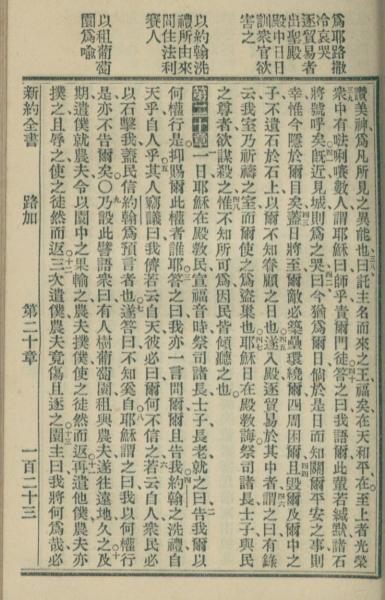 爲耶路撒
冷哀哭
逐貿易者
出聖殿
殿中日日
訓衆官欲
害之
以約翰洗
禮所由來
問住法利
賽人
以租葡萄
園爲喻
讚美神爲凡所見之異能也曰託主名而來之王福矣在天和平在至上者光榮
衆中有𠵽唎㘔數人謂耶穌曰師乎責爾門徒答之曰我語爾此輩若緘默諸石
將號呼矣旣近見城則爲之哭曰今猶爲爾日倘於是日而知關爾平安之事則
幸惟今隱於爾目矣蓋日將至爾敵必築壘環繞爾四周困爾且毀爾及爾中之
子不遺石於石上以爾不知眷顧之日也遂入殿逐貿易於其中者謂之曰有錄
云我室乃祈禱之室而爾使之爲盜巢也耶穌日在殿教誨祭司諸長士子與民
之尊者欲謀殺之惟不知所可爲因民皆傾聽之也
第二十章 一日耶穌在殿教民宣福音時祭司諸長士子長老就之曰告我爾以
何權行是抑賜爾此權者誰耶答之曰我亦一言問爾爾且告我約翰之洗禮自
天乎自人乎其人竊議曰我儕若云自天彼必曰爾何不信之若云自人衆民必
以石擊我蓋民信約翰爲預言者也遂答曰不知奚自耶穌謂之曰我以何權行
是亦不告爾矣〇乃設此譬語衆曰有人樹葡萄園租與農夫遂往遠地久之及
期遣僕就農夫令以園中之果輸之農夫撲僕使之徒然而返再遣他僕農夫亦
撲之且辱之使之徒然而返三次遣僕農夫竟傷且逐之園主曰我將何爲哉必
新約全書 路加 第二十章 一百二十三